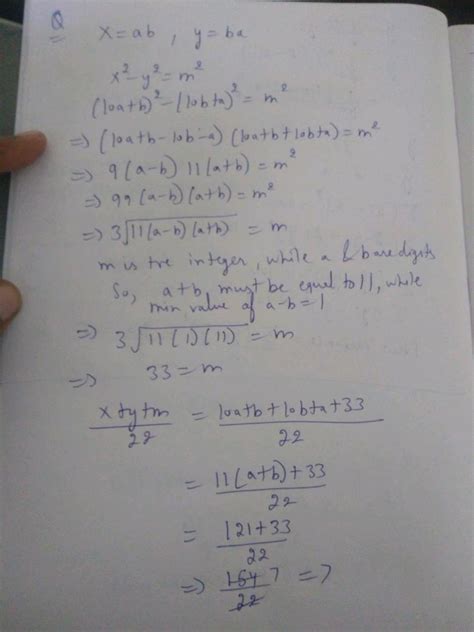 Q
x = ab , y = ba
x² - y² = m²
(10a+b)² - (10b+a)² = m²
⇒ (10a+b-10b-a) (10a+b+10b+a) = m²
⇒ 9(a-b) 11(a+b) = m²
⇒ 99(a-b)(a+b) = m²
⇒ 3√11(a-b)(a+b) = m
m is +ve integer, while a & b are digits
So, a+b, must be equal to 11, while
min value of a-b=1
⇒ 3√11(1)(11) = m
⇒ 33 = m
x+y+m/22 = 10a+b+10b+a+33/22
= 11(a+b)+33/22
= 121+33/22
⇒ 154/22 7 ⇒ 7